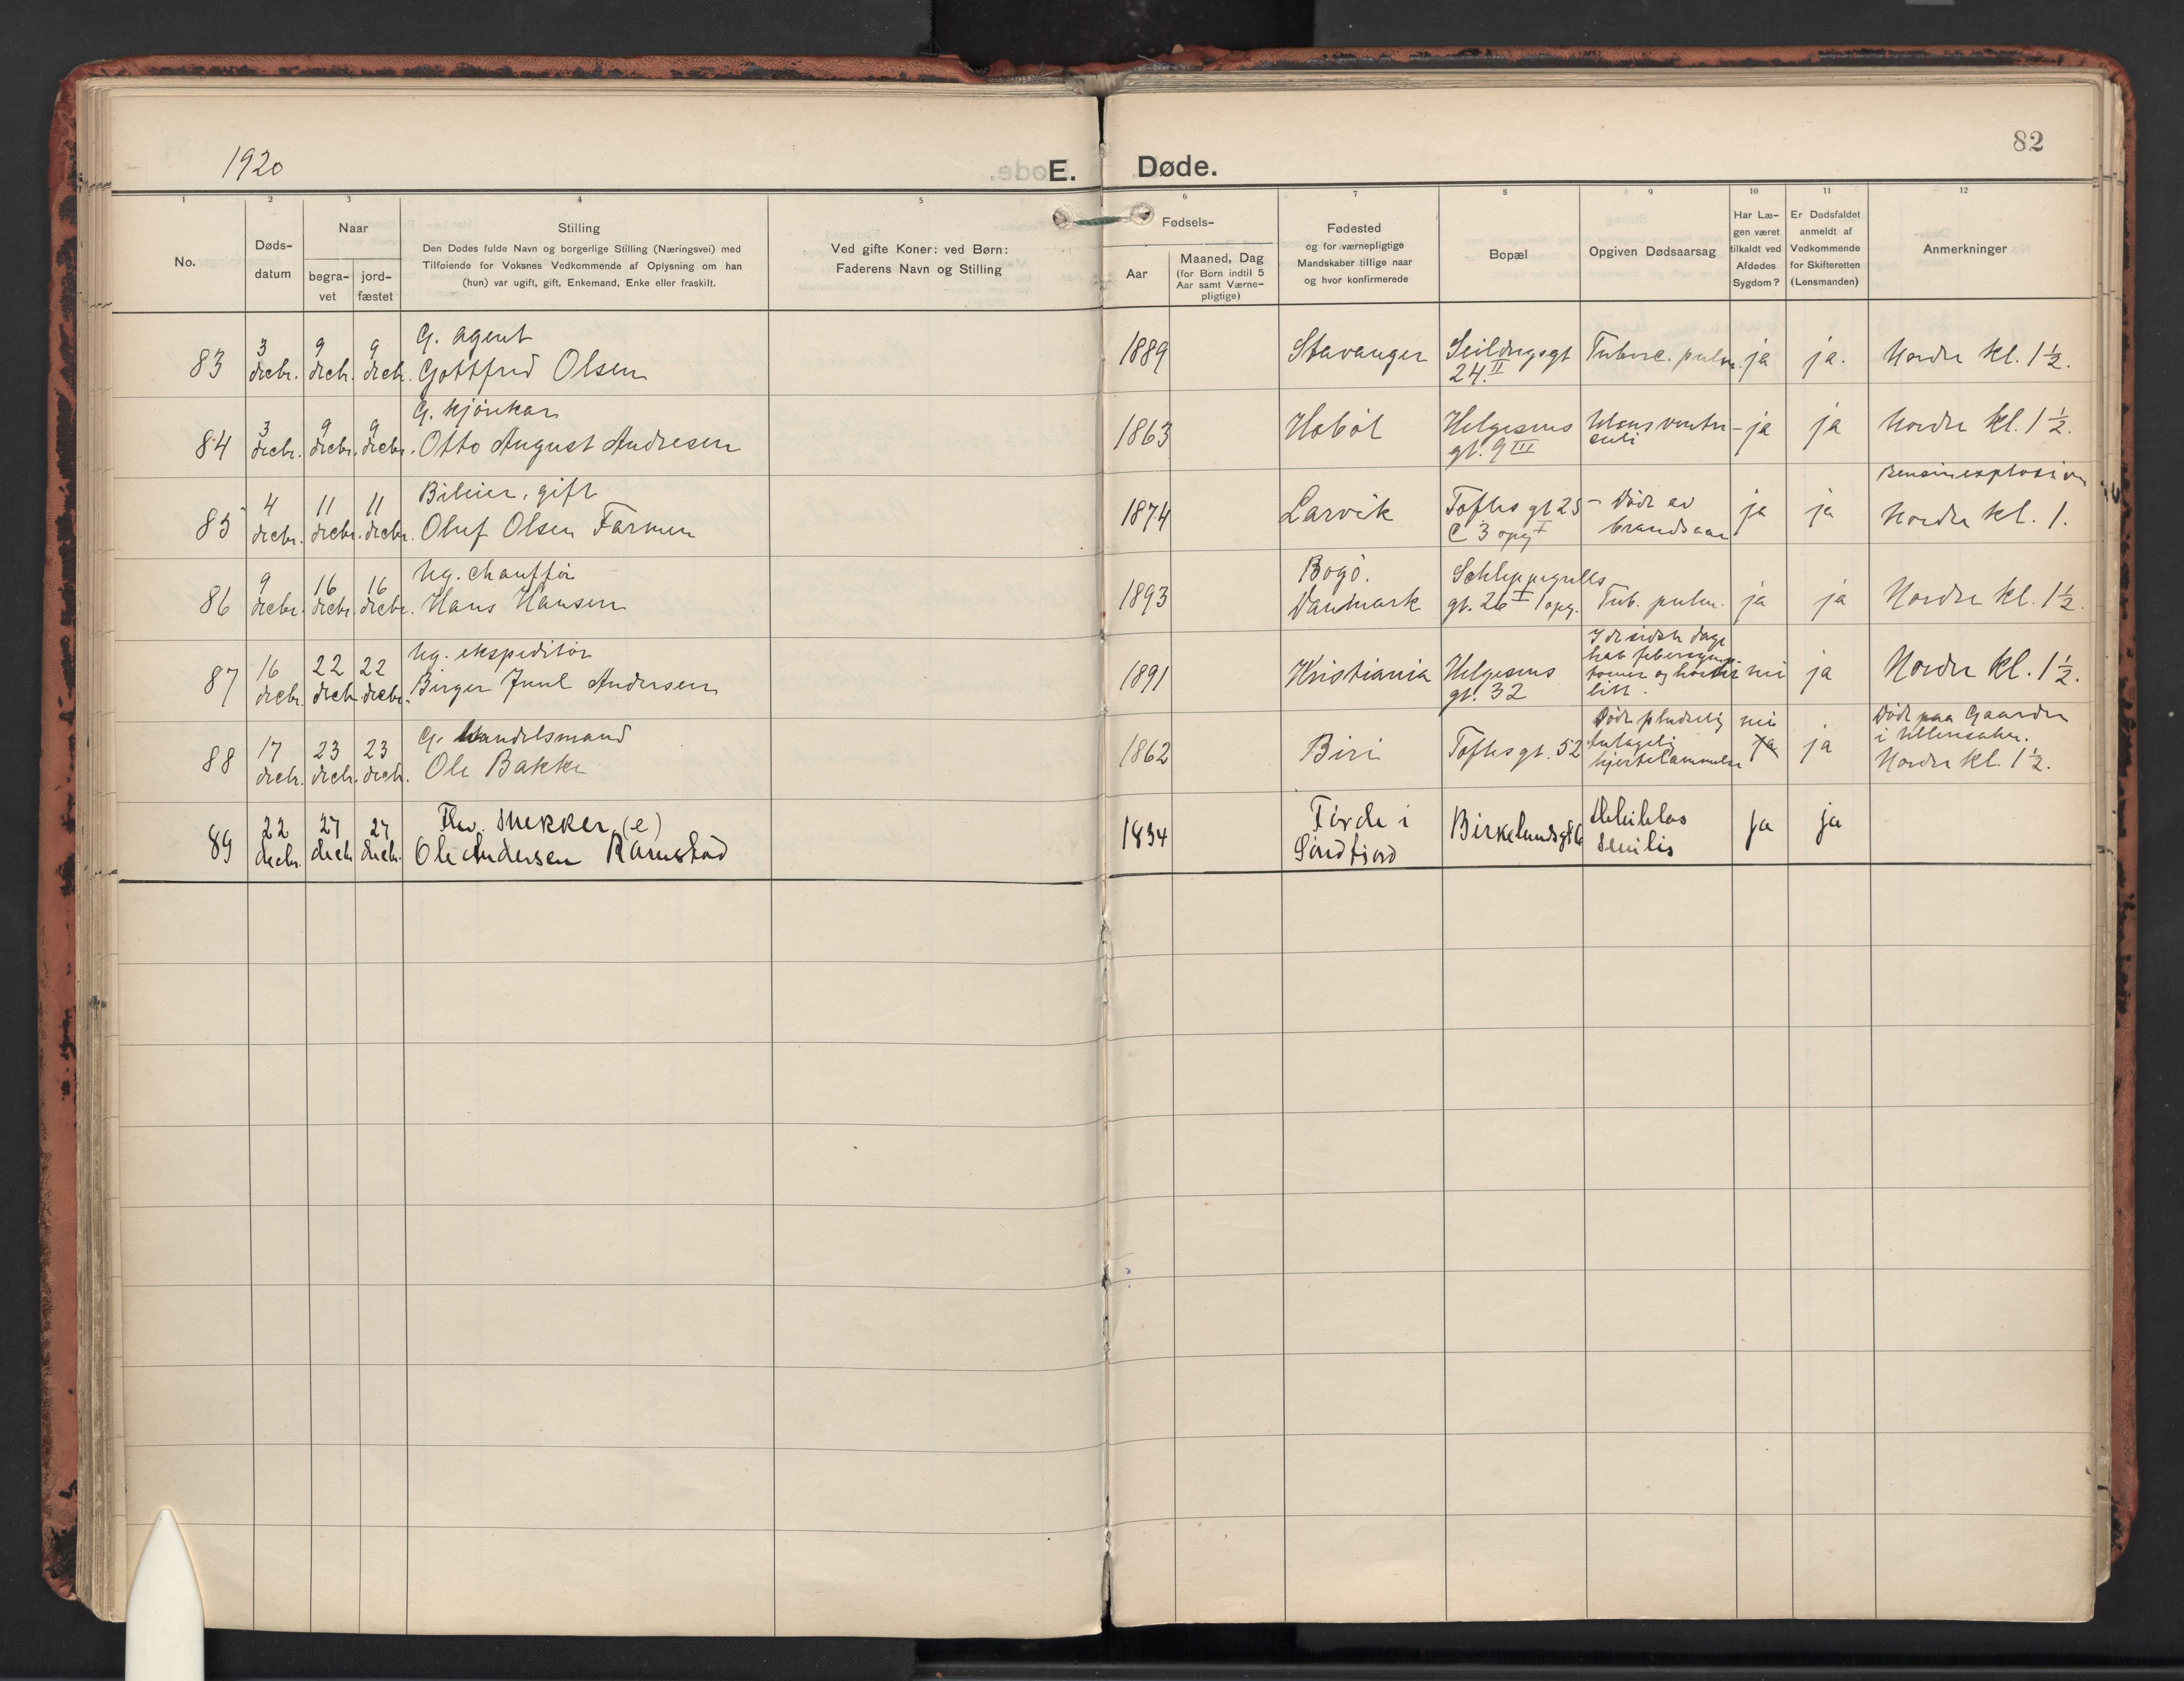 1920
E.
Døde.
82
1 2 3 4 5 6 7 8 9 10 11 12
No.
Døds-
datum
Naar
begra-
vet
jord-
fæstet
Stilling
Den Dødes fulde Navn og borgerlige Stilling (Næringsvei) med
Tilføiende for Voksnes Vedkommende af Oplysning om han
(hun) var ugift, gift, Enkemand, Enke eller fraskilt.
Ved gifte Koner: ved Børn:
Faderens Navn og Stilling
Fødsels-
Aar
Maaned, Dag
(for Børn indtil 5
Aar samt Værne-
pligtige)
Fødested
og for værnepligtige
Mandskaber tillige naar
og hvor konfirmerede
Bopæl
Opgiven Dødsaarsag
Har Læ-
gen været
tilkaldt ved
Afdødes
Sygdom?
Er Dødsfaldet
anmeldt af
Vedkommende
for Skifteretten
(Lensmanden)
Anmerkninger
83
3
decbr.
9
decbr.
9
decbr.
G. agent
Gottfred Olsen
1889
Stavanger
Seildugsgt
24. II
Tuberc. pulm.
ja
ja.
Nordre kl. 1½.
84
3
decbr.
9
decbr.
9
decbr.
G. kjørekar
Otto August Andresen
1863
Hobøl
Helgesens
gt. 9 III
Ulcus ventri-
culi
ja
ja
Nordre kl. 1½.
85
4
decbr.
11
decbr.
11
decbr.
Bileier, gift
Oluf Olsen Farmen
1874
Larvik
Toftes gt 25
C 3 opg I
Døde av
brandsaar
ja
ja
Bensinexplosion
Nordre kl. 1.
86
9
decbr.
16
decbr.
16
decbr.
Ug. chauffør
Hans Hansen
1893
Bogø.
Danmark
Schleppegrells
gt. 26 I 1 opg.
Tub. pulm.
ja
ja
Nordre kl. 1½.
87
16
decbr.
22
decbr.
22
decbr.
Ug. ekspeditør
Birger Juul Andersen
1891
Kristiania
Helgesens
gt. 32
I de sidste dage
hat febersymp-
tomer og hostet
litt.
nei
ja
Nordre kl. 1½.
88
17
decbr.
23
decbr.
23
decbr.
G. Handelsmand
Ole Bakke
1862
Biri
Toftes gt. 52
Døde pludselig
antagelig
hjertelammelse
nei
ja
ja
Døde paa Gaarden
i Ullensaker.
Nordre kl. 1½.
89
22
decbr.
27
decbr.
27
decbr.
Fhv. snekker (e)
Ole Andersen Ramstad
1834
Førde i
Søndfjord
Birkelundsgt 6
senilis
ja
ja